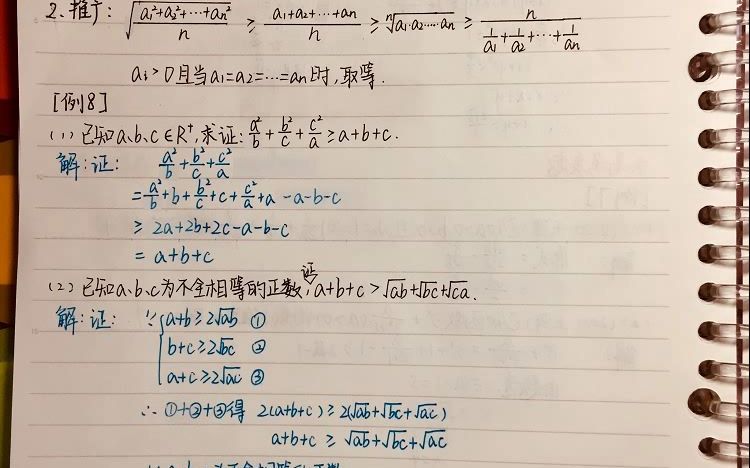 2、推广: √((a₁²+a₂²+…+aₙ²)/n) ≥ (a₁+a₂+…+aₙ)/n ≥ ⁿ√(a₁·a₂……aₙ) ≥ n/(1/a₁+1/a₂+…+1/aₙ)
aᵢ>0且当a₁=a₂=…=aₙ时,取等.
[例8]
(1)已知a、b、c∈R⁺,求证: a²/b + b²/c + c²/a ≥ a+b+c.
解:证: a²/b + b²/c + c²/a
= a²/b + b + b²/c + c + c²/a + a - a - b - c
≥ 2a+2b+2c-a-b-c
= a+b+c
(2)已知a、b、c为不全相等的正数,证a+b+c>√ab+√bc+√ca.
解:证: ∵{a+b≥2√ab ①
b+c≥2√bc ②
a+c≥2√ac ③
∴ ①+②+③得 2(a+b+c)≥2(√ab+√bc+√ac)
a+b+c ≥ √ab+√bc+√ac